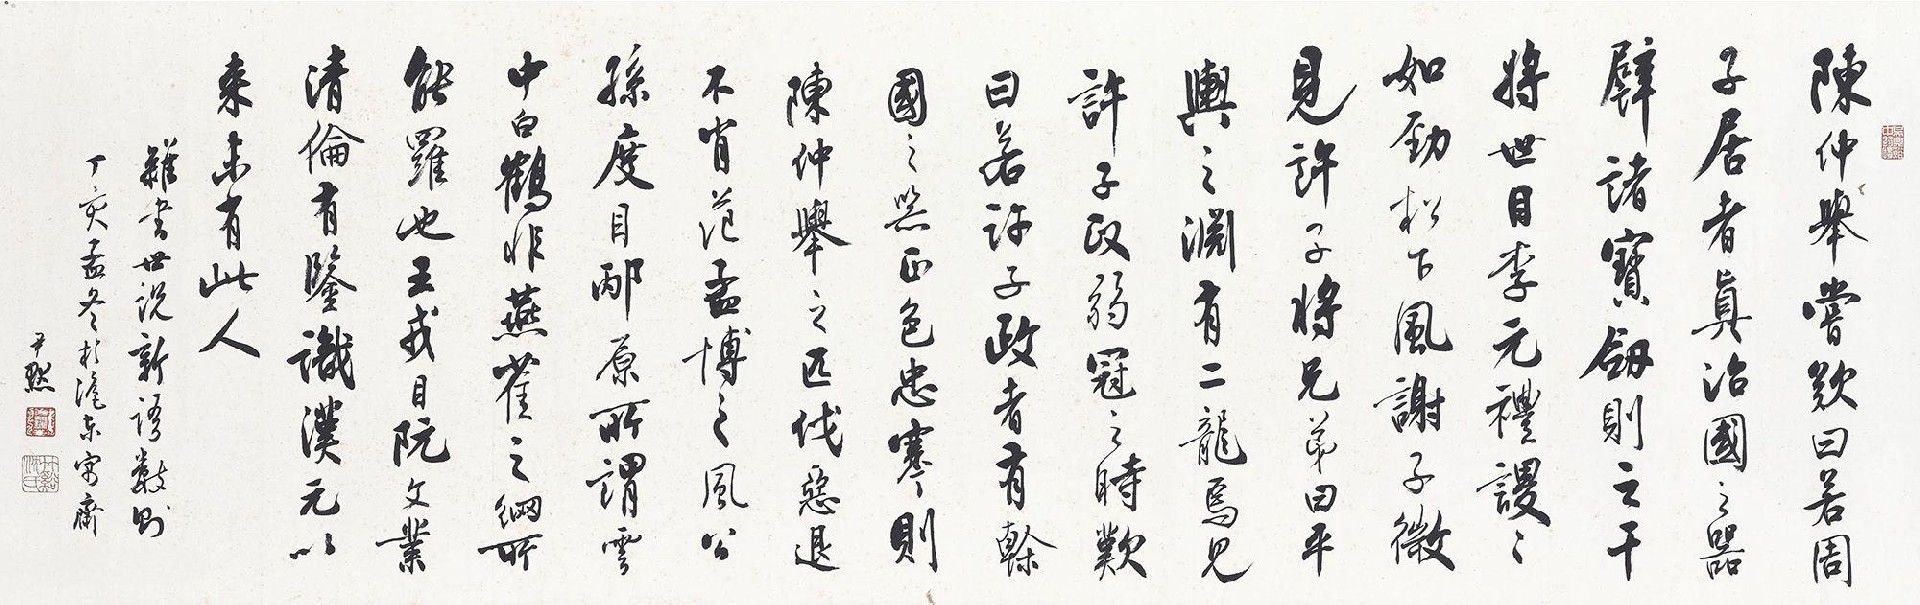 陳仲舉嘗歎曰若周
子居者真治國之器
譬諸寶劍則之干
將世目李元禮謖〻
如勁松下風謝子微
見許子將兄弟曰平
輿之淵有二龍焉見
許子政弱冠之時歎
曰若許子政者有幹
國之器正色忠謇則
陳仲舉之匹伐惡退
不肖范孟博之風公
孫度目邴原所謂雲
中白鶴非燕雀之網所
能羅也王戎目阮文業
清倫有鑒識漢元以
來未有此人
雜書世說新語數則
丁亥孟冬於滬東寓齋
尹默